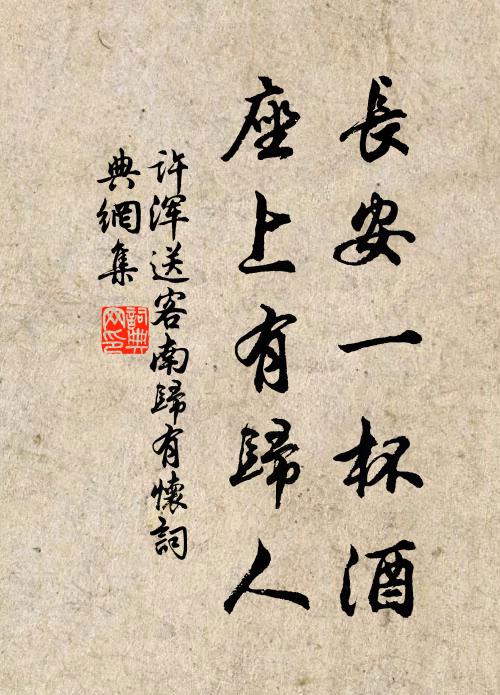 長安一杯酒
座上有歸人
许浑送客南歸有懷詞
典網集
詞典网印